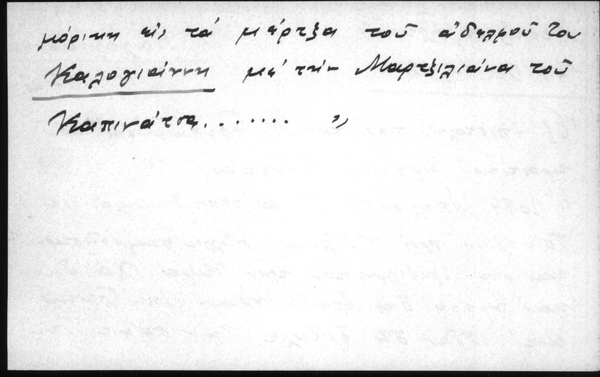 μόρικη εἰς τά μέρτζα τοῦ ἀδελφοῦ του
Καλογιάννη μέ τήν Μαρτζιλιάνα τοῦ
Καπινάτσα........ "